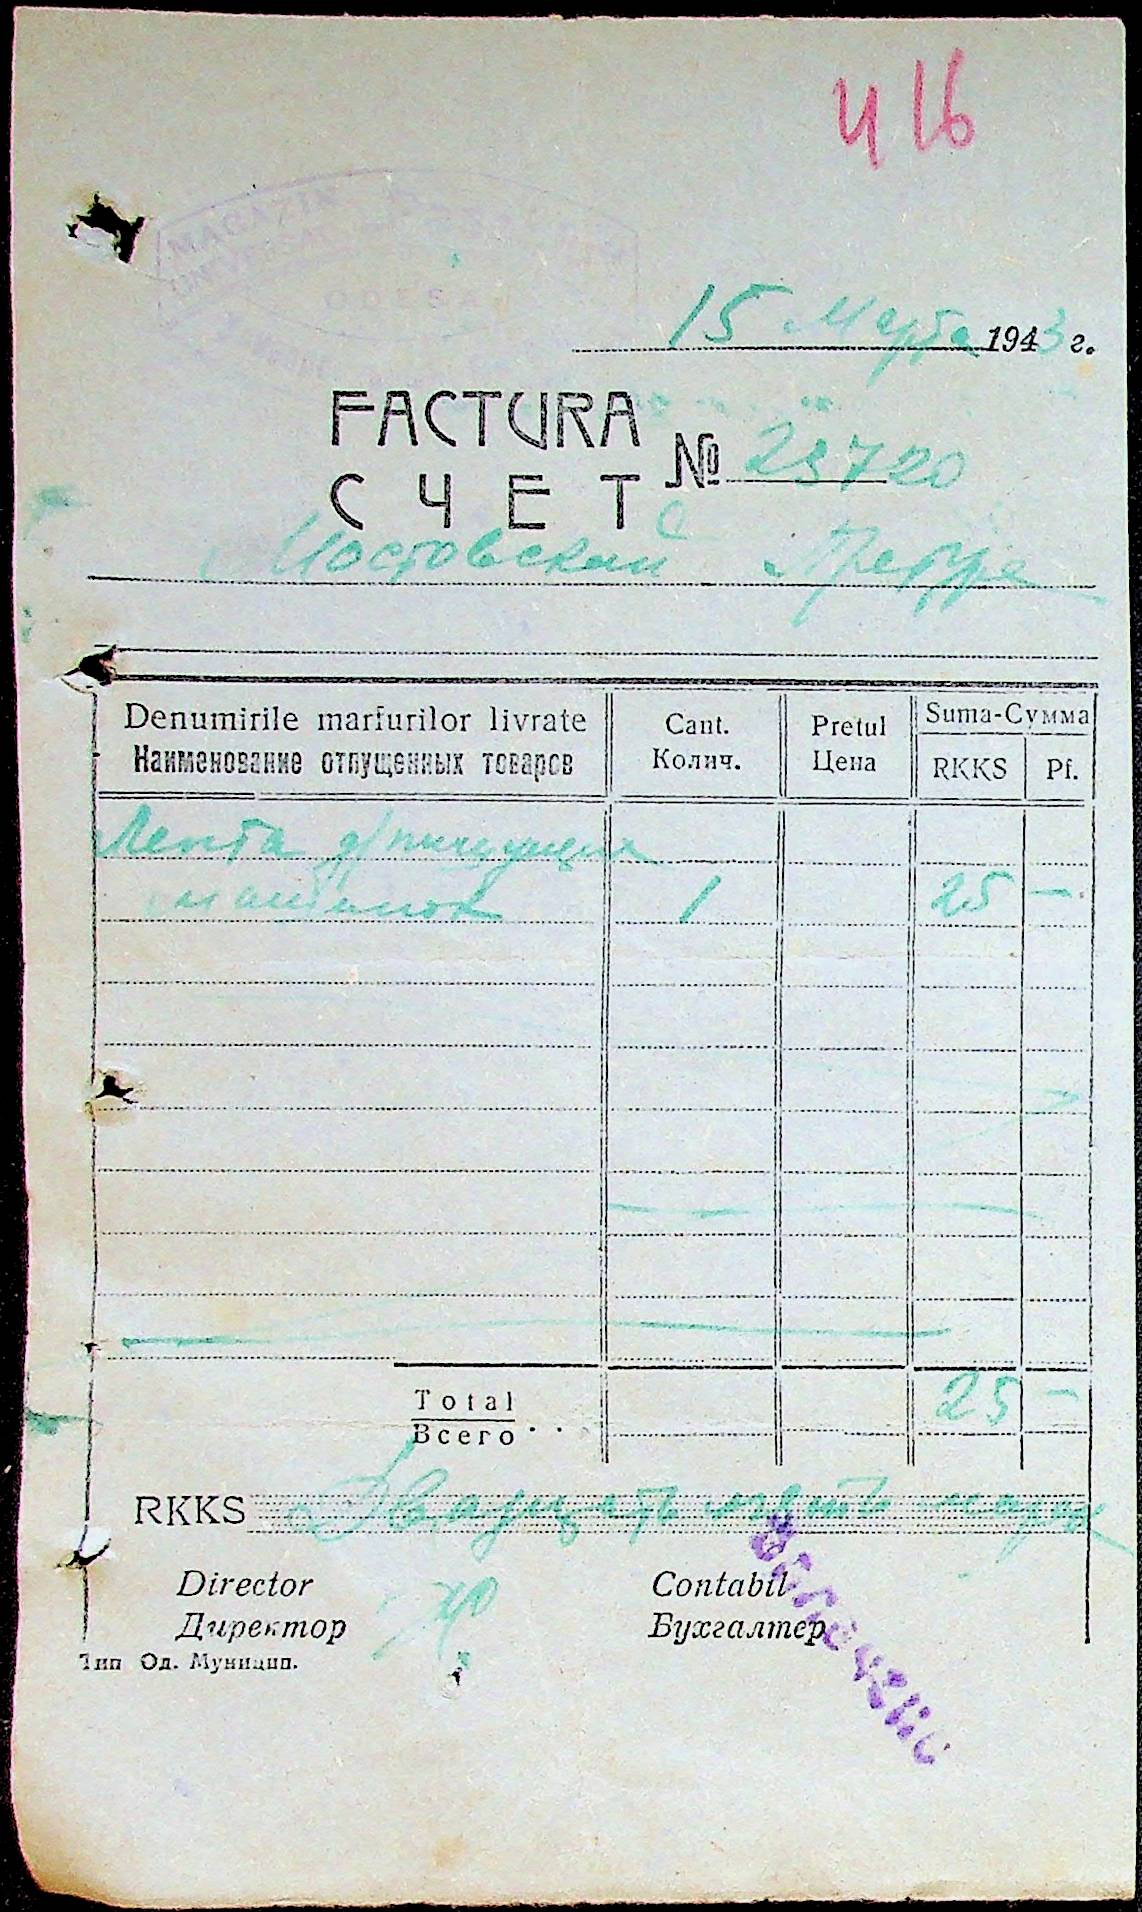 416
MAGAZIN
UNIVERSAL
ODESA
15 Марта 1943 г.
FACTURA
СЧЕТ № 23720
Мостовской Претуре
Denumirile marfurilor livrate Cant. Pretul Suma-Сумма
Наименование отпущенных товаров Колич. Цена RKKS Pf.
Лента д/пишущих
машинок 1 25 —
Total 25 —
Всего
RKKS Двадцать пять марок
Director Contabil
Директор Бухгалтер
Тип Од. Муницип.
Оплочено